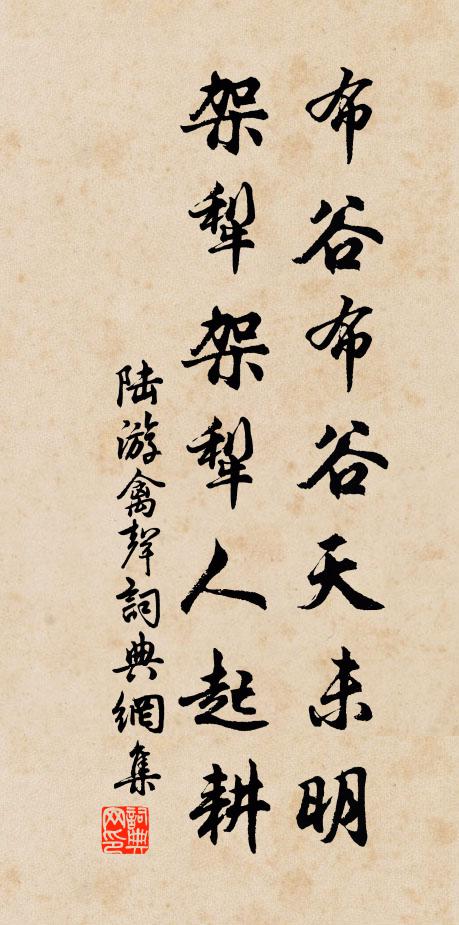 布谷布谷天未明
架犁架犁人起耕
陆游禽聲詞典網集
詞典网印